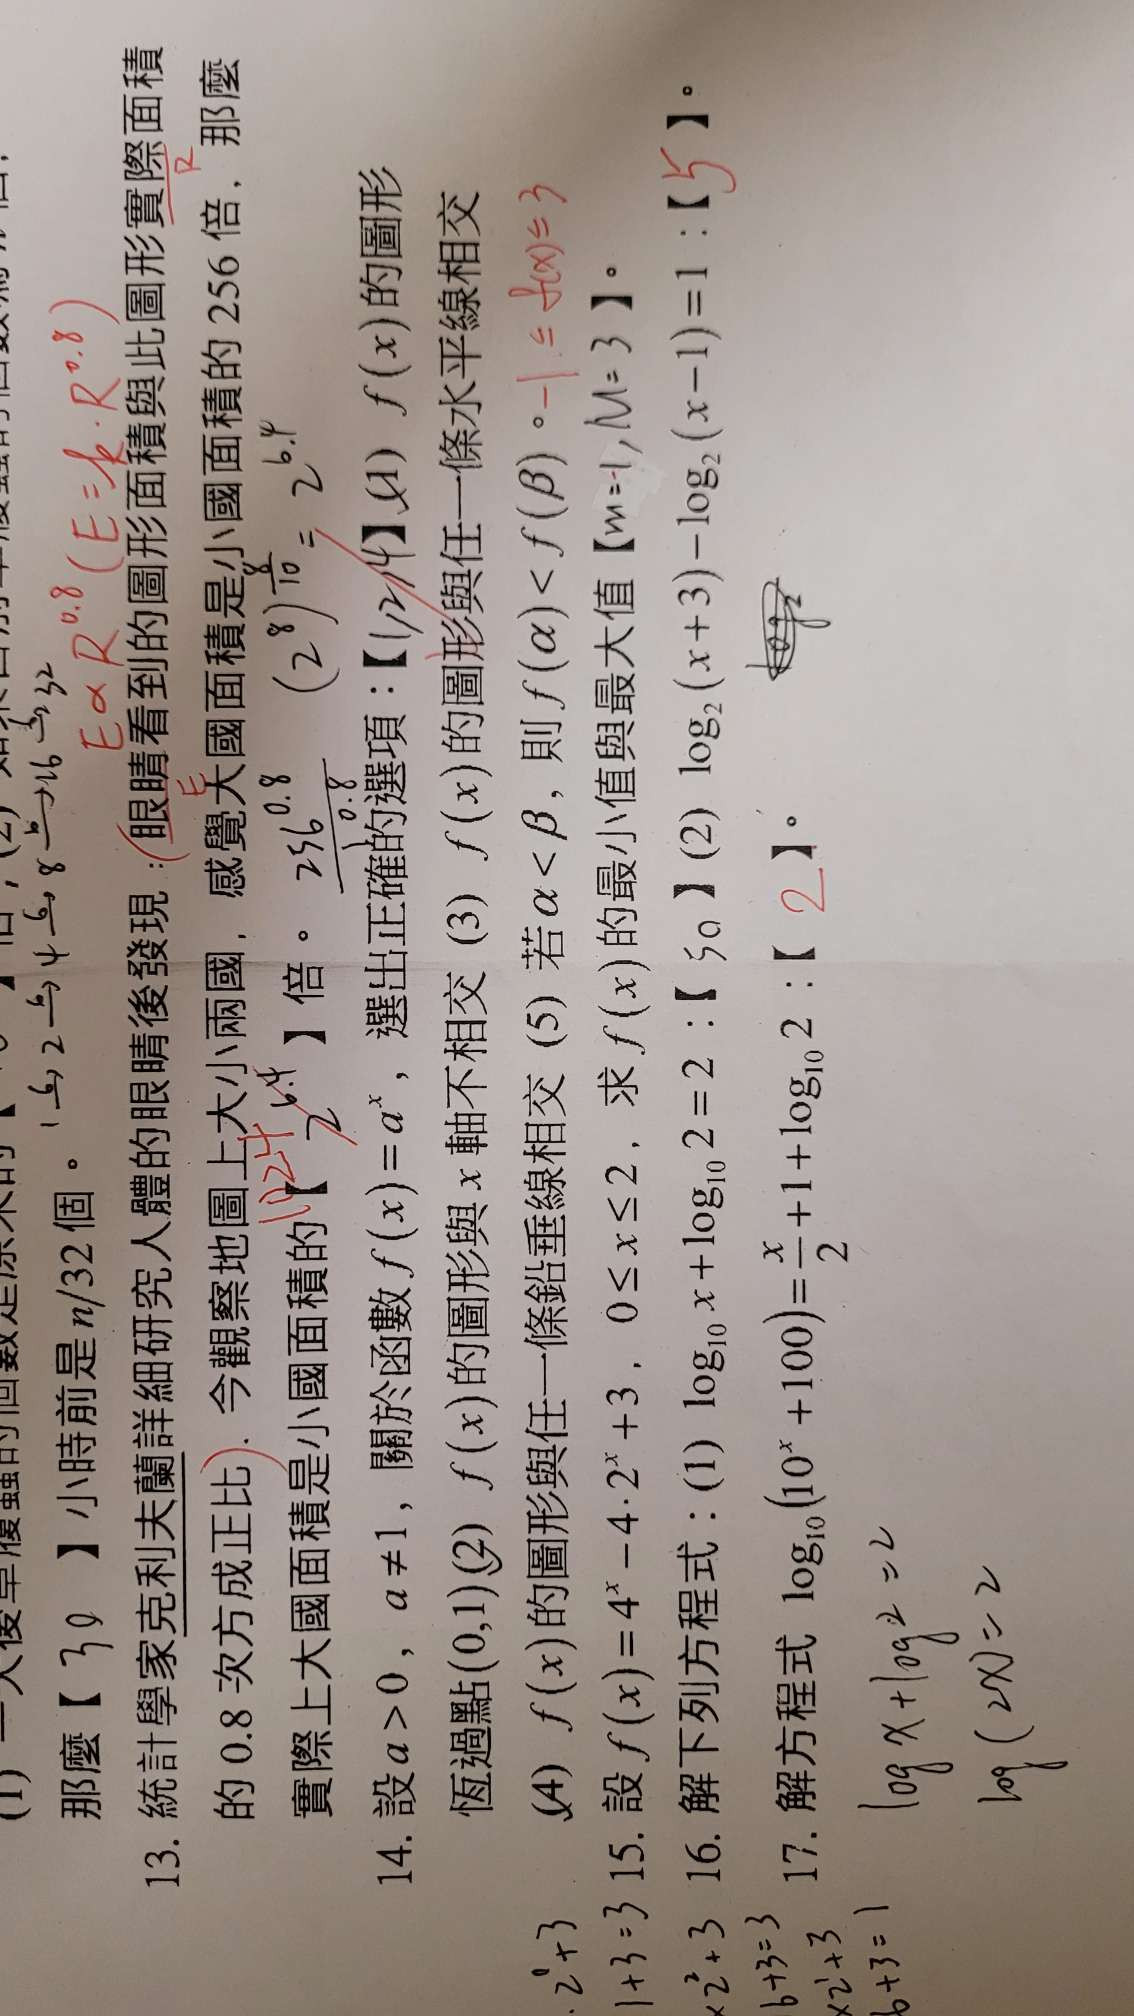 那麼【30】小時前是 n/32 個。
1→2→4→8→16→32
E∝R^0.8 (E=k·R^0.8)
13. 統計學家克利夫蘭詳細研究人體的眼睛後發現：(眼睛看到的圖形面積與此圖形實際面積
E
R
的 0.8 次方成正比). 今觀察地圖上大小兩國，感覺大國面積是小國面積的 256 倍，那麼
1024
實際上大國面積是小國面積的【2^6.4】倍。 256^0.8 (2^8)^(8/10) = 2^6.4
1/0.8
14. 設 a>0，a≠1，關於函數 f(x)=a^x，選出正確的選項：【1,2,4】(1) f(x)的圖形
恆過點(0,1) (2) f(x)的圖形與 x 軸不相交 (3) f(x)的圖形與任一條水平線相交
(4) f(x)的圖形與任一條鉛垂線相交 (5) 若 α<β，則 f(α)<f(β)。 -1≤f(x)≤3
15. 設 f(x)=4^x−4·2^x+3，0≤x≤2，求 f(x)的最小值與最大值【m=-1, M=3】。
16. 解下列方程式：(1) log₁₀x+log₁₀2=2：【50】(2) log₂(x+3)−log₂(x−1)=1：【5】。
17. 解方程式 log₁₀(10^x+100)=x/2+1+log₁₀2：【2】。
log x+log 2=2
log(2x)=2
·2^0+3
1+3=3
×2^2+3
6+3=3
×2^1+3
6+3=1